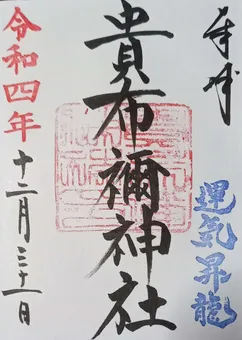 奉拝
運気昇龍
貴布禰神社
令和四年
十二月三十一日